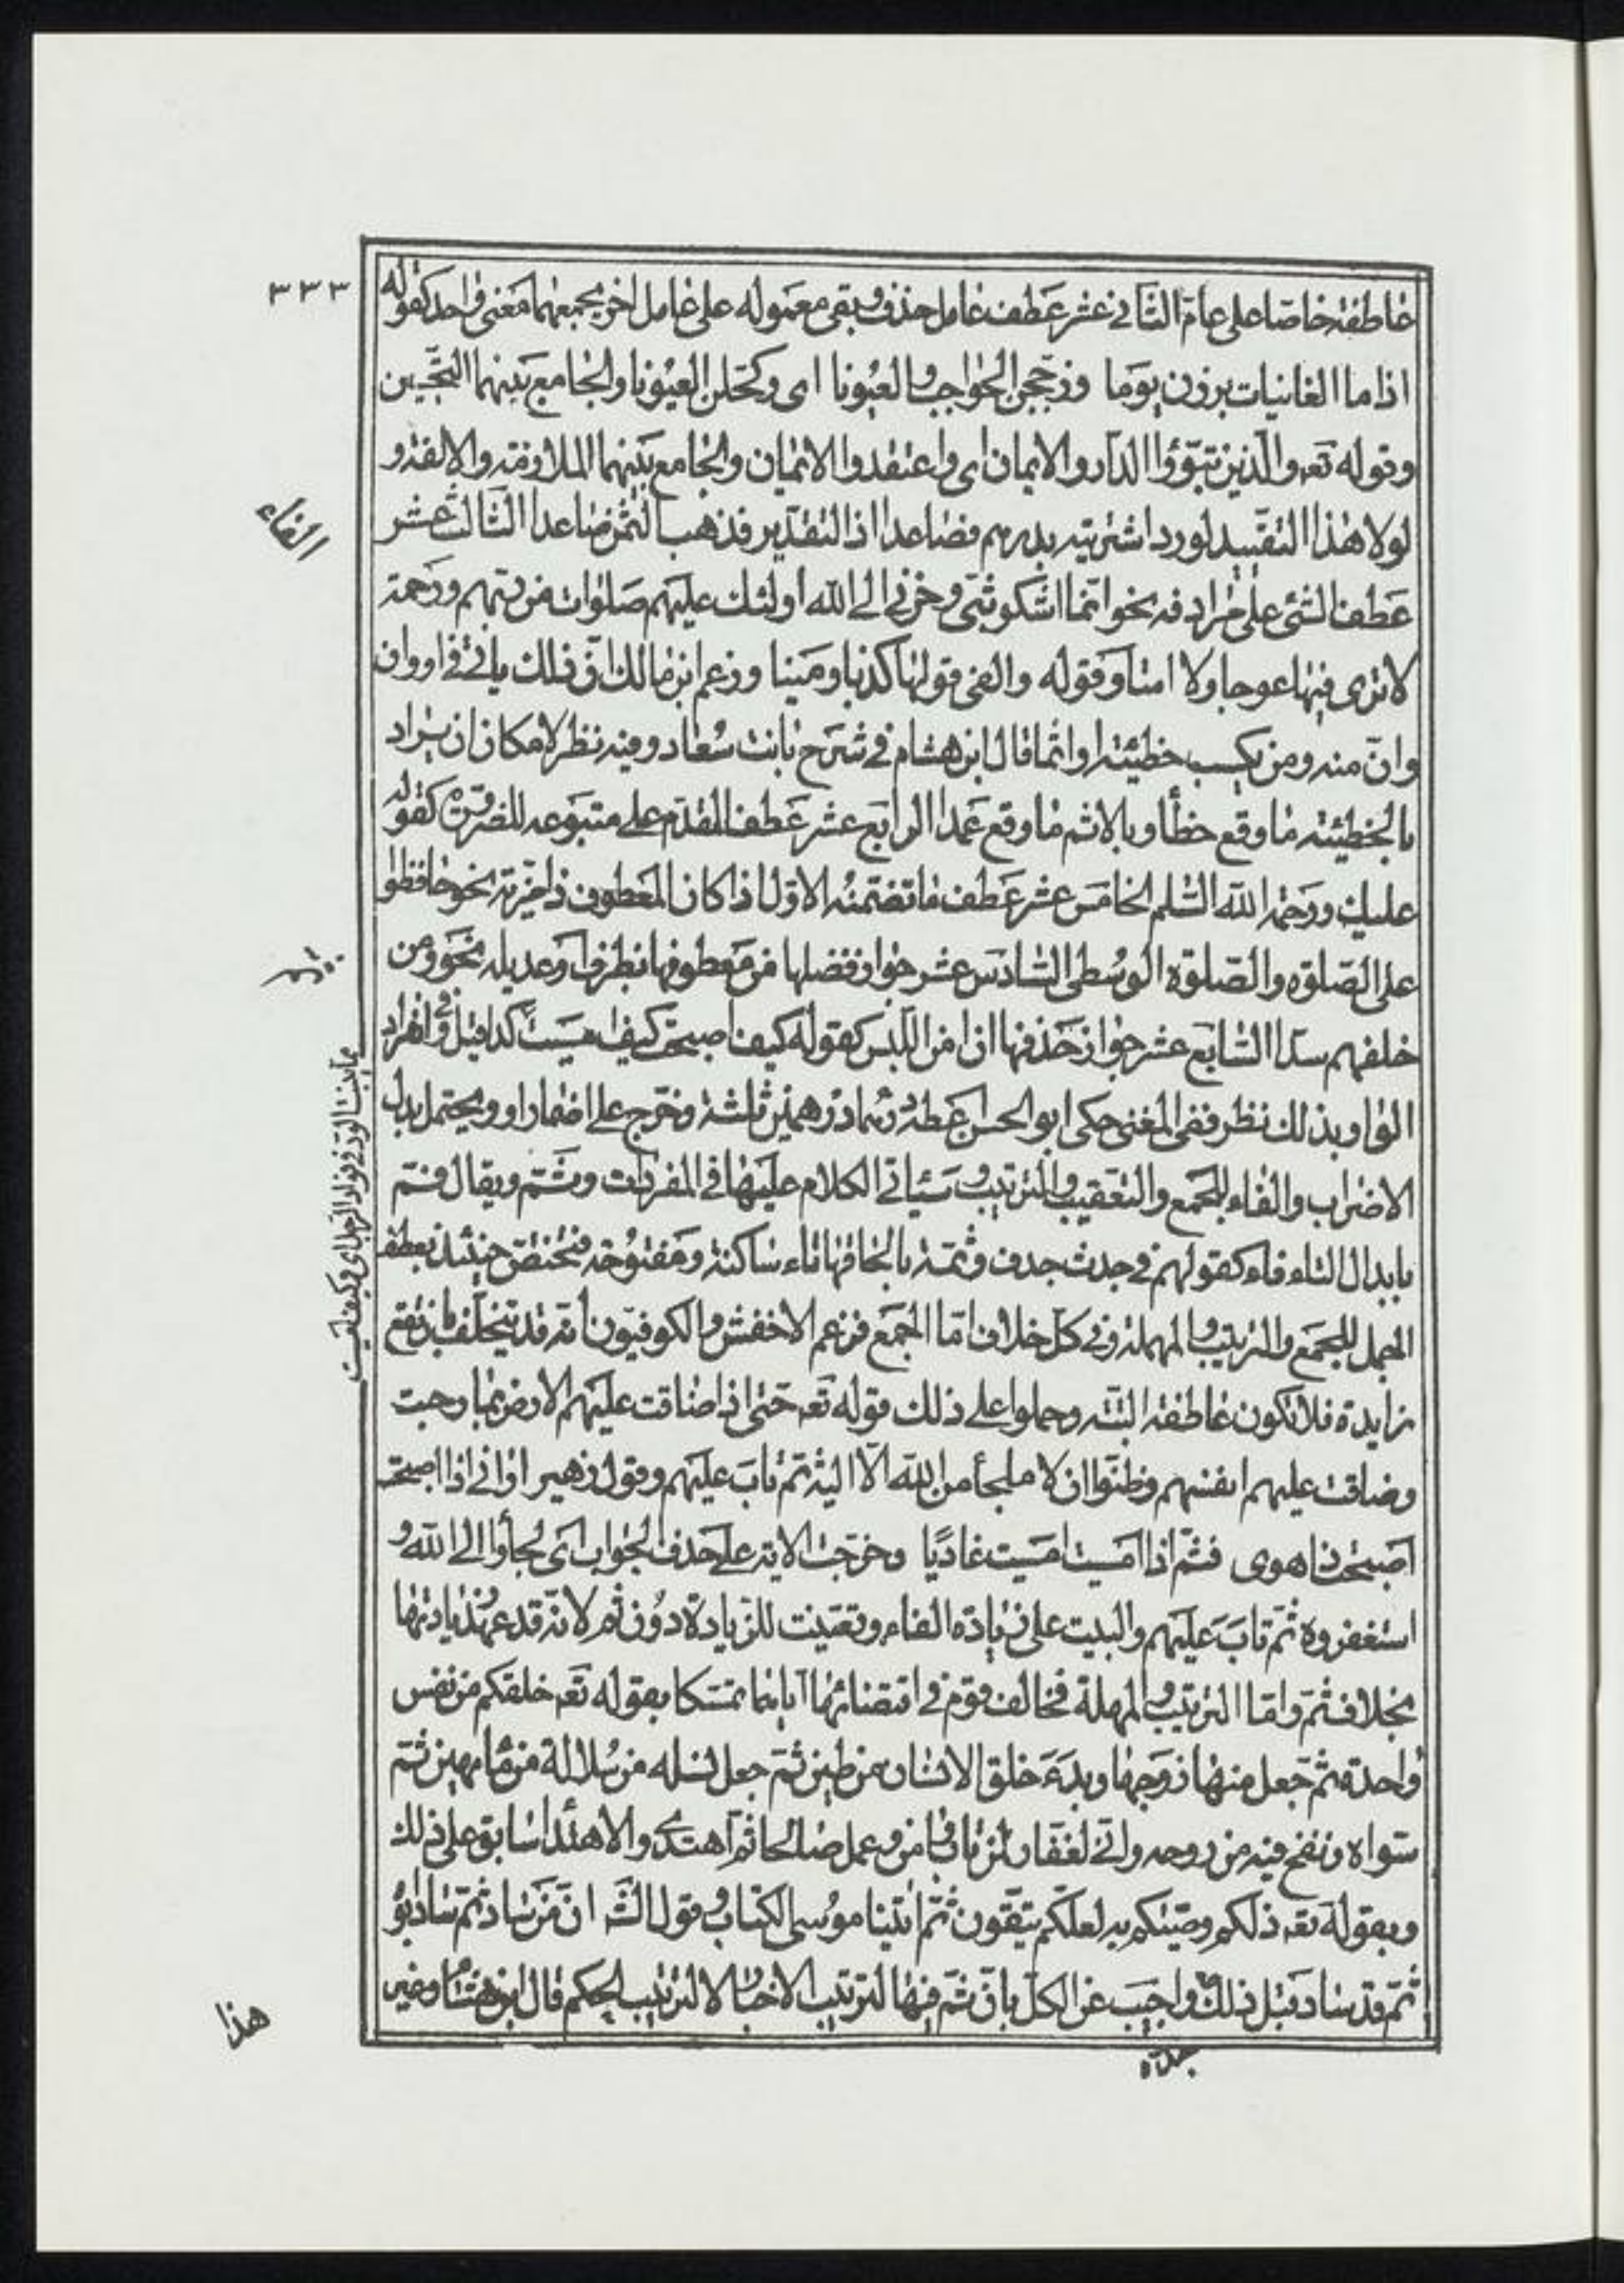 ٣٣٣
عاطفة خاصا على عام الثانى عشر عطف عامل حذف وبقى معموله على عامل اخر يجمعهما معنى واحد كقوله
اذا ما الغانيات برزن يوما وزججن الحواجب والعيونا اى وكحلن العيونا والجامع بينهما التحسين
وقوله تعه والذين تبوؤا الدار والايمان اى واعتقدوا الايمان والجامع بينهما الملازمة والالفة و
الفاء
لولا هذا التقييد لورد اشتريته بدرهم فصاعدا اذ التقدير فذهب الثمن صاعدا الثالث عشر
عطف الشئ على مرادفه نحو انما اشكو بثى وحزنى الى الله اولئك عليهم صلوات من ربهم ورحمة
لا ترى فيها عوجا ولا امتا وقوله والفى قولها كذبا ومينا وزعم ابن مالك ان ذلك ياتى فى او وان
وان منه ومن يكسب خطيئة او اثما قال ابن هشام فى شرح بانت سعاد وفيه نظر لامكان ان يراد
بالخطيئة ما وقع خطأ وبالاثم ما وقع عمدا الرابع عشر عطف المقدم على متبوعه للضرورة كقوله
عليك ورحمة الله السلم الخامس عشر عطف ما تضمنه الاول اذا كان المعطوف ذا مزية نحو حافظوا
على الصلوة والصلوة الوسطى السادس عشر جواز فصلها من معطوفها بظرف او عديله نحو ومن
خلفهم سدا السابع عشر جواز حذفها ان امن اللبس كقوله كيف اصبحت كيف امسيت كذا قيل وفى انفراد
الواو بذلك نظر ففى المغنى حكى ابو الحسن عطه درهما درهمين ثلثة وخرج على اضمار او ويحتمل بدل
الاضراب والفاء للجمع والتعقيب والترتيب وسياتى الكلام عليها فى المفردات وثم ويقال فثم
بابدال الثاء فاء كقولهم فى جدث جدف وثمة بالحاقها تاء ساكنة ومفتوحة فتختص حينئذ بعطف
الجمل للجمع والترتيب والمهملة وفى كل خلاف اما الجمع فزعم الاخفش والكوفيون انه قد يتخلف بان تقع
زايدة فلا تكون عاطفة البتة وحملوا على ذلك قوله تعه حتى اذا ضاقت عليهم الارض بما رحبت
وضاقت عليهم انفسهم وظنوا ان لا ملجأ من الله الا اليه ثم تاب عليهم وقول زهير ارانى اذا اصبحت
اصبحت ذا هوى فثم اذا امسيت امسيت غاديا وخرجت الاية على حذف الجواب اى لجأوا الى الله و
استغفروه ثم تاب عليهم والبيت على زيادة الفاء وتعينت للزيادة دون ثم لانه قد عهد زيادتها
بخلاف ثم واما الترتيب والمهلة فخالف قوم فى اقتضائها اياهما تمسكا بقوله تعه خلقكم من نفس
واحدة ثم جعل منها زوجها وبدء خلق الانسان من طين ثم جعل نسله من سلالة من ماء مهين ثم
سواه ونفخ فيه من روحه وانى لغفار لمن تاب وامن وعمل صالحا ثم اهتدى والاهتداء سابق على ذلك
وبقوله تعه ذلكم وصيكم به لعلكم تتقون ثم اتينا موسى الكتاب وقول الشه ان من ساد ثم ساد ابوه
ثم قد ساد قبل ذلك جده واجيب عن الكل بان ثم فيها لترتيب الاخبار لا لترتيب الحكم قال ابن هشام وغيره
هذا